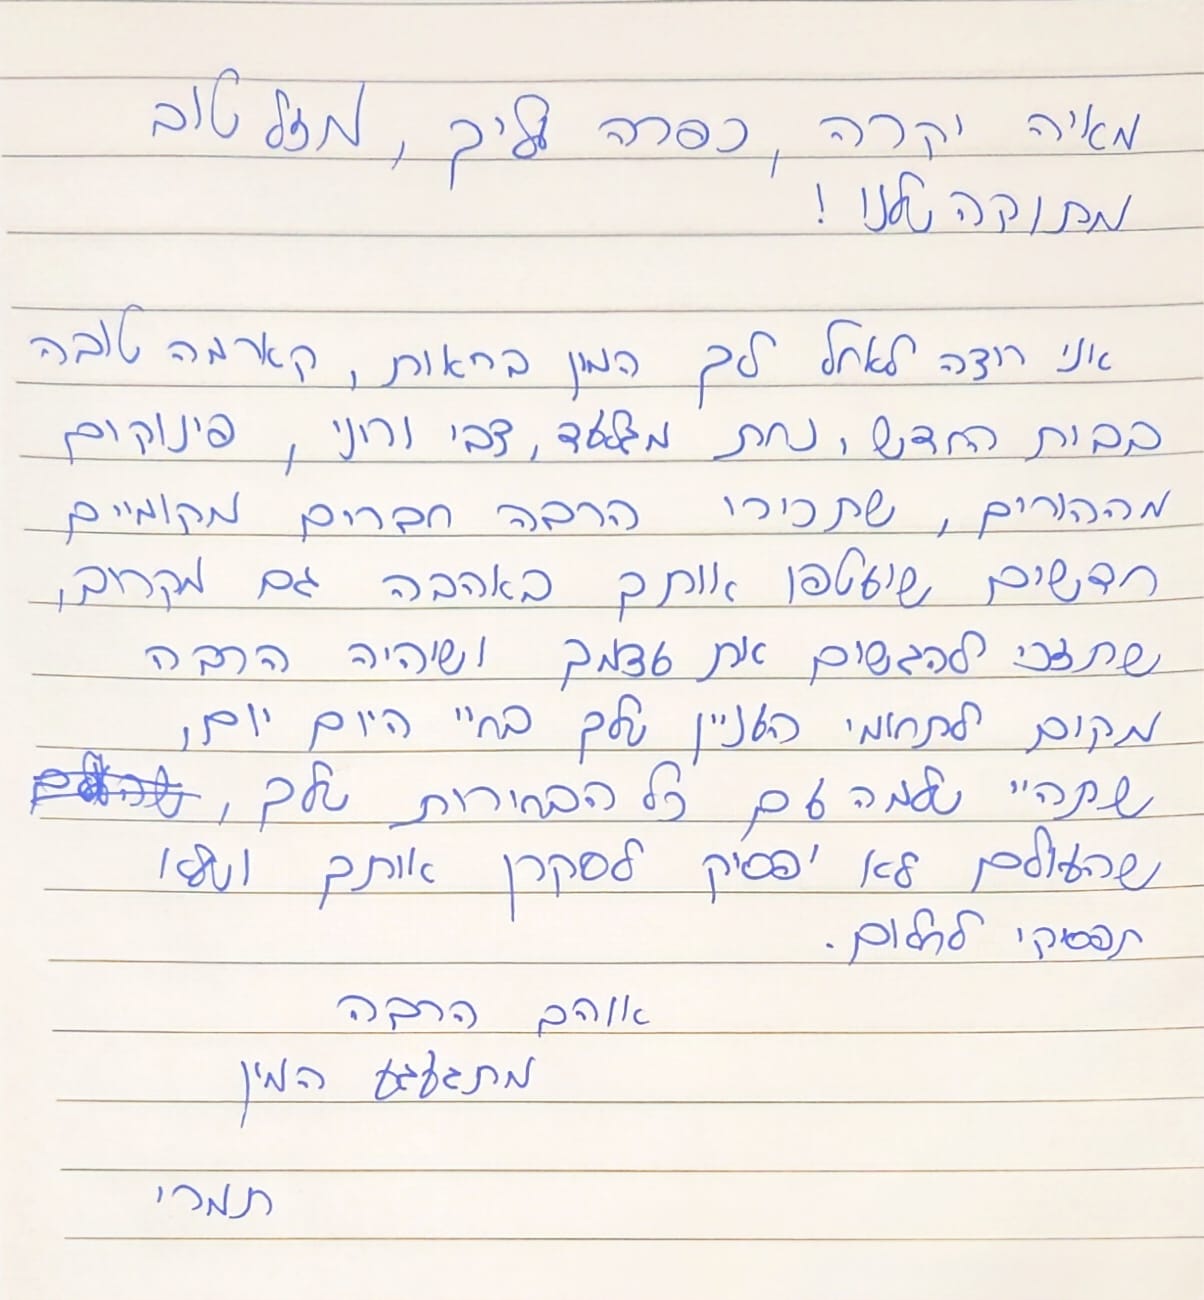 מאיה יקרה, כפרה עליך, מזל טוב
מתוקה שלנו!
אני רוצה לאחל לך המון בריאות, קארמה טובה
בבית החדש, נחת מגלעד, צבי ורוני, פינוקים
מההורים, שתכירו הרבה חברים מקומיים
חדשים שיעטפו אותך באהבה גם מקרוב,
שתזכי להגשים את עצמך ושיהיה הרבה
מקום לתחומי העניין שלך בחיי היום יום,
שתהיי שלמה עם כל הבחירות שלך,
שהעולם לא יפסיק לסקרן אותך ושלא
תפסיקי לחלום.
אוהב הרבה
מתגעגע המון
תמרי